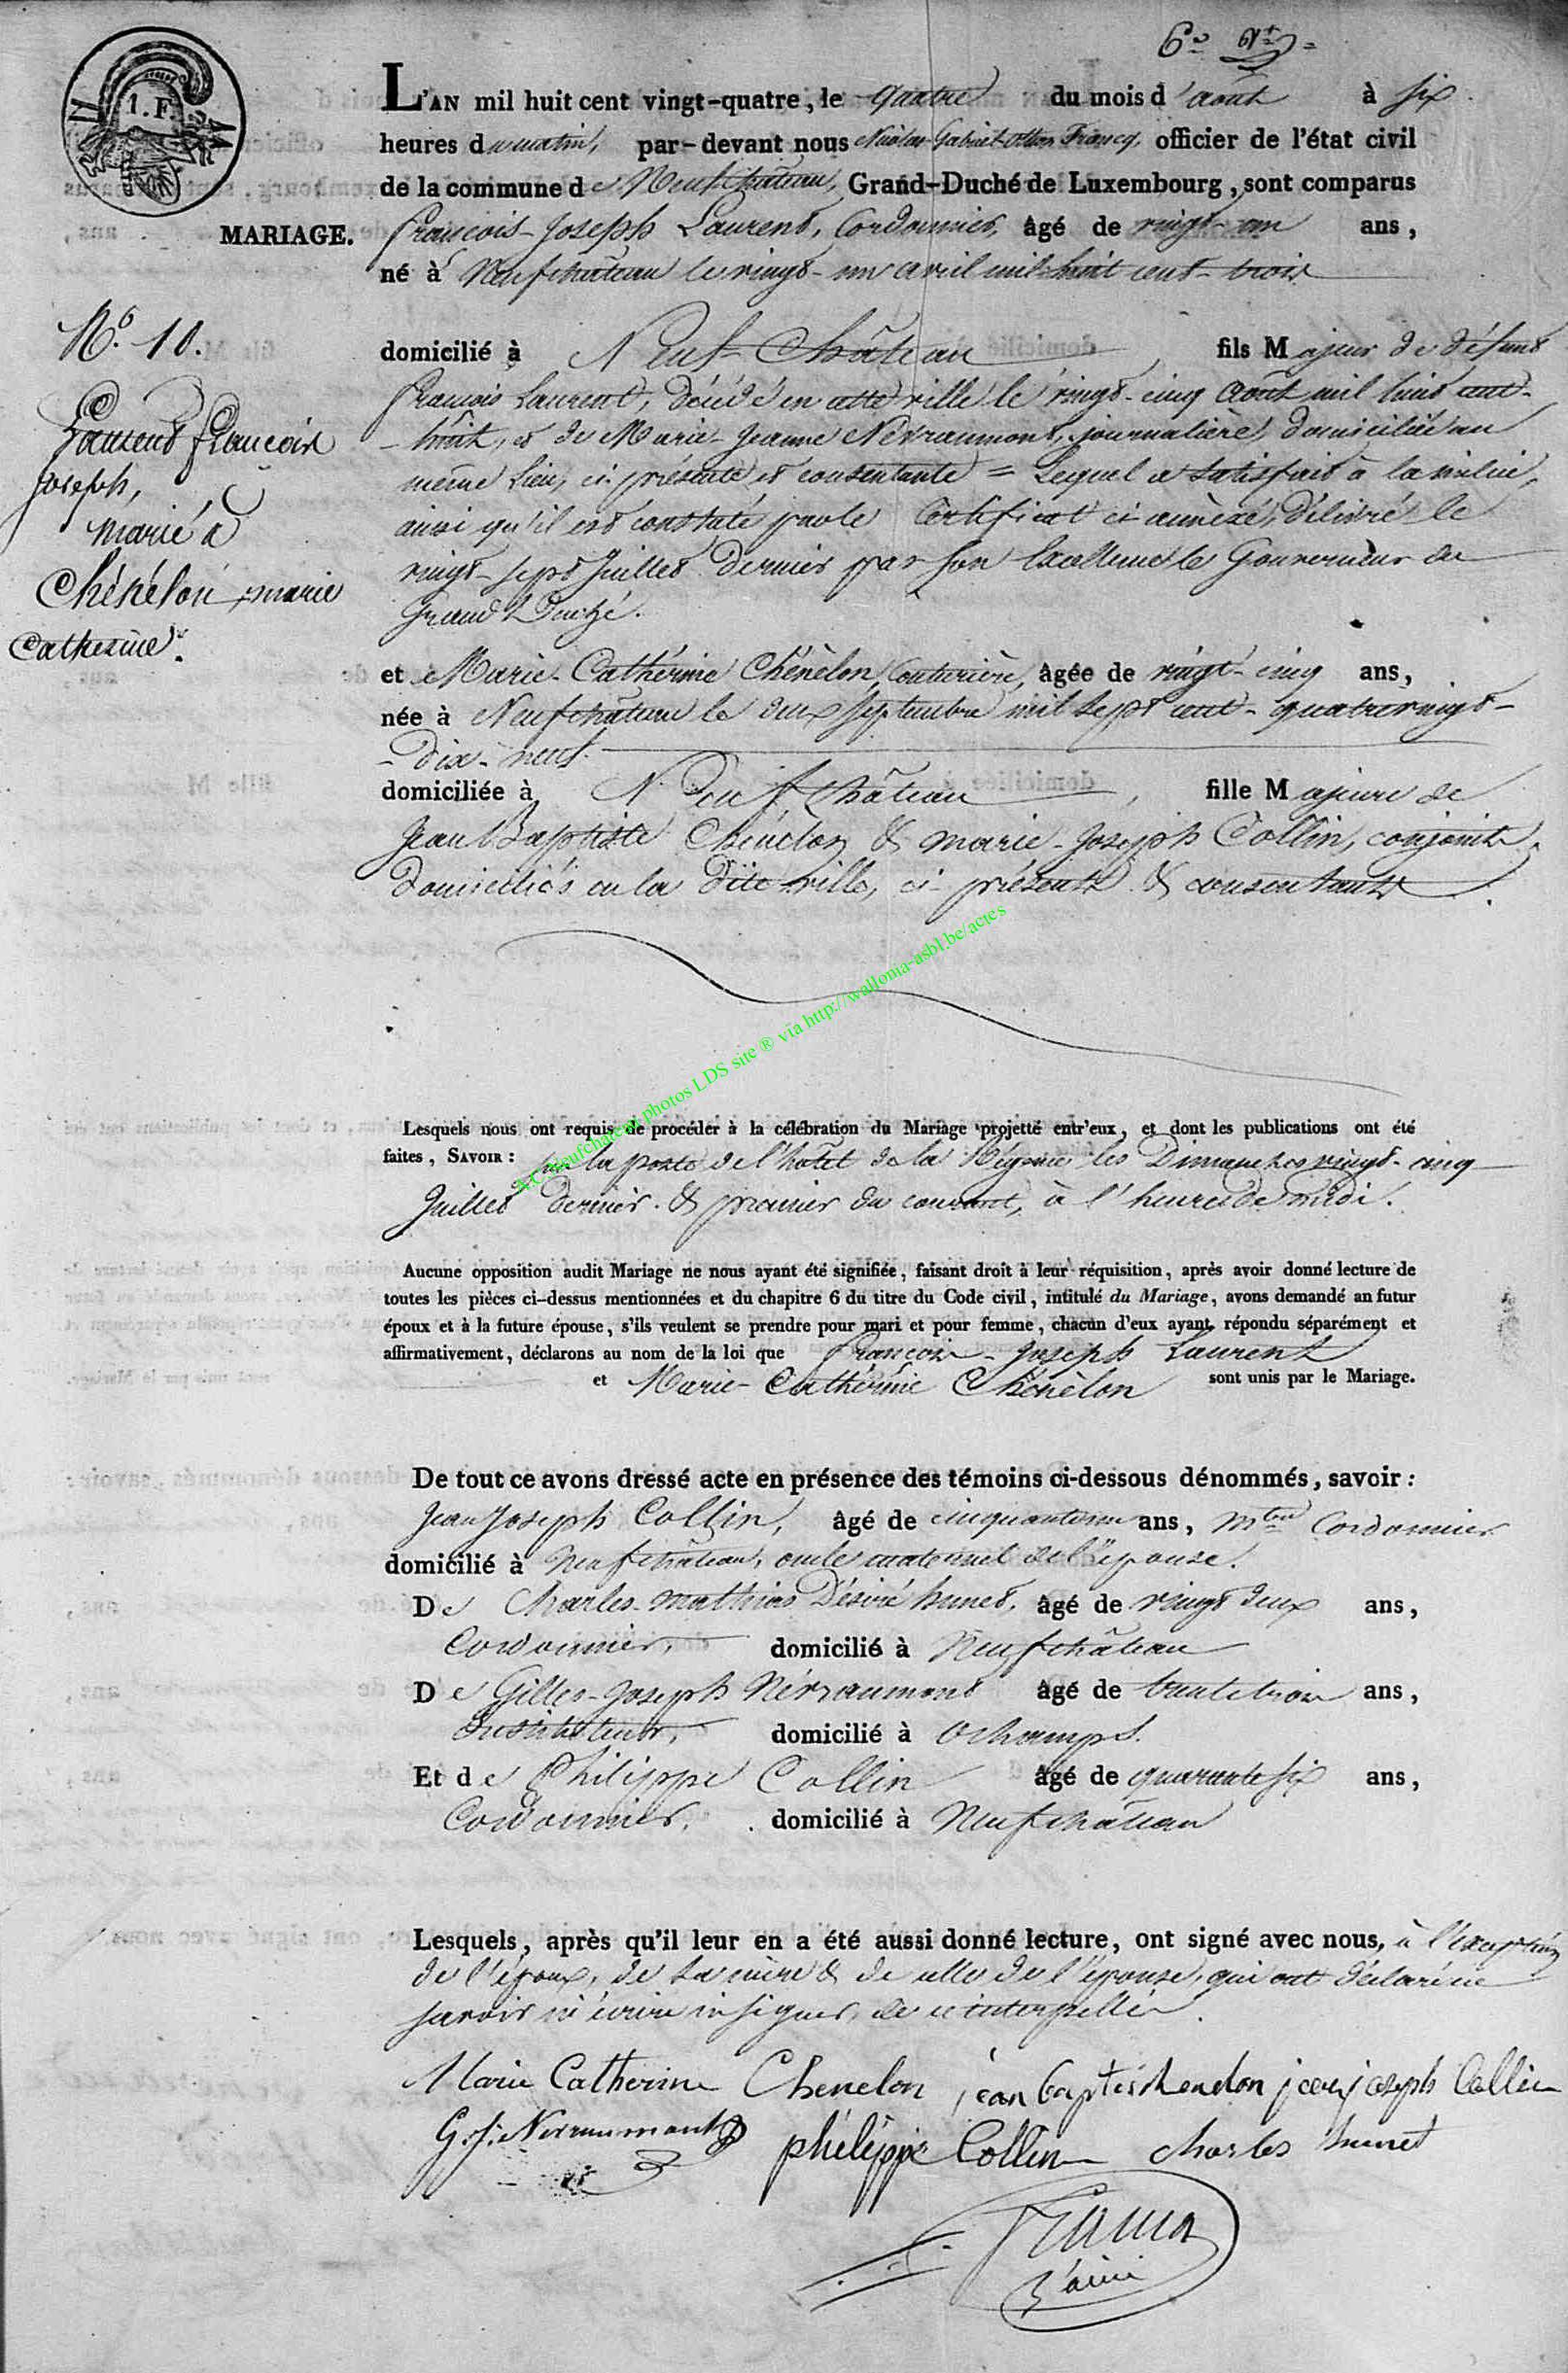 6e
1. F.
L'AN mil huit cent vingt-quatre, le quatre du mois d'août à six
heures du matin, par-devant nous Nicolas-Gabriel-Otton Francq, officier de l'état civil
de la commune de Neufchâteau, Grand-Duché de Luxembourg, sont comparus
MARIAGE. François-Joseph Laurent, Cordonnier, âgé de vingt-un ans,
né à Neufchâteau le vingt-un avril mil huit cent-trois
N.º 10.
domicilié à Neuf-Château, fils Majeur de défunt
François Laurent, décédé en cette ville le vingt-cinq Août mil huit cent-
-huit, et de Marie-Jeanne Névraumont, journalière, domiciliée au
même lieu, ci-présente et consentante = Lequel a satisfait à la milice,
ainsi qu'il est constaté par le Certificat ci-annexé, délivré le
vingt-sept Juillet dernier par Son Excellence le Gouverneur du
Grand Duché.
Laurent François
Joseph,
marié à
Chénélon, marie
Catherine.
et Marie-Cathérine Chénélon, Couturière, âgée de vingt-cinq ans,
née à Neufchâteau le deux Septembre mil sept cent-quatrevingt-
-dix-neuf.
domiciliée à Neufchâteau, fille Majeure de
Jean Baptiste Chénélon & marie-Joseph Collin, conjoints,
domiciliés en la dite ville, ci-présents & consentants.
AC Neufchateau photos LDS site ® via http://wallonia-asbl.be/actes
Lesquels nous ont requis de procéder à la célébration du Mariage projetté entr'eux, et dont les publications ont été
faites, SAVOIR : sur la porte de l'hôtel de la Régence les Dimanches vingt-cinq
Juillet dernier & premier du courant, à l'heure de midi.
Aucune opposition audit Mariage ne nous ayant été signifiée, faisant droit à leur réquisition, après avoir donné lecture de
toutes les pièces ci-dessus mentionnées et du chapitre 6 du titre du Code civil, intitulé du Mariage, avons demandé au futur
époux et à la future épouse, s'ils veulent se prendre pour mari et pour femme, chacun d'eux ayant répondu séparément et
affirmativement, déclarons au nom de la loi que François-Joseph Laurent
et Marie-Cathérine Chénélon sont unis par le Mariage.
De tout ce avons dressé acte en présence des témoins ci-dessous dénommés, savoir :
Jean Joseph Collin, âgé de ans, Cordonnier
domicilié à Neufchâteau, oncle maternel de l'épouse.
De Charles-Mathias Désiré hunet, âgé de vingt deux ans,
Cordonnier, domicilié à Neufchâteau
De Gilles-Joseph Névraumont âgé de trente trois ans,
Instituteur, domicilié à Ochamps.
Et de Philippe Collin âgé de quarante six ans,
Cordonnier, domicilié à Neufchâteau
Lesquels, après qu'il leur en a été aussi donné lecture, ont signé avec nous, à l'exception
de l'époux, de sa mère & de celle de l'épouse, qui ont déclaré ne
savoir ni écrire ni signer, de ce interpellés.
Marie Catherine Chenelon jean baptis chenelon jean joseph Collin
G. J. Nevraumont philippe Collin charles hunet
Francq